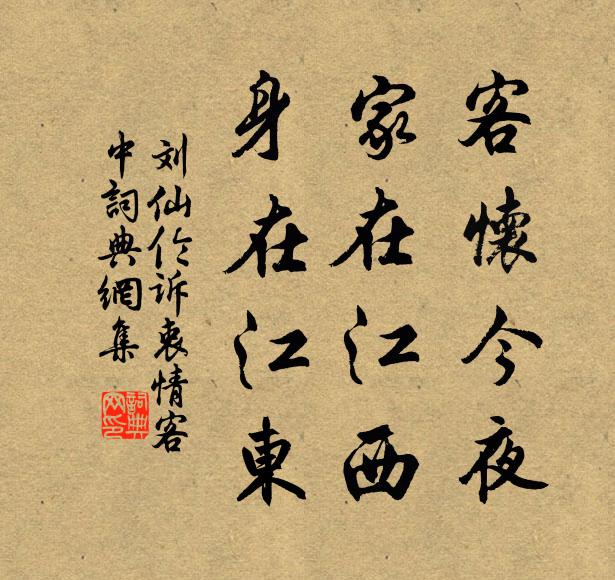 客懷今夜
家在江西
身在江東
刘仙伦訴衷情客
中詞典網集
詞典
网印